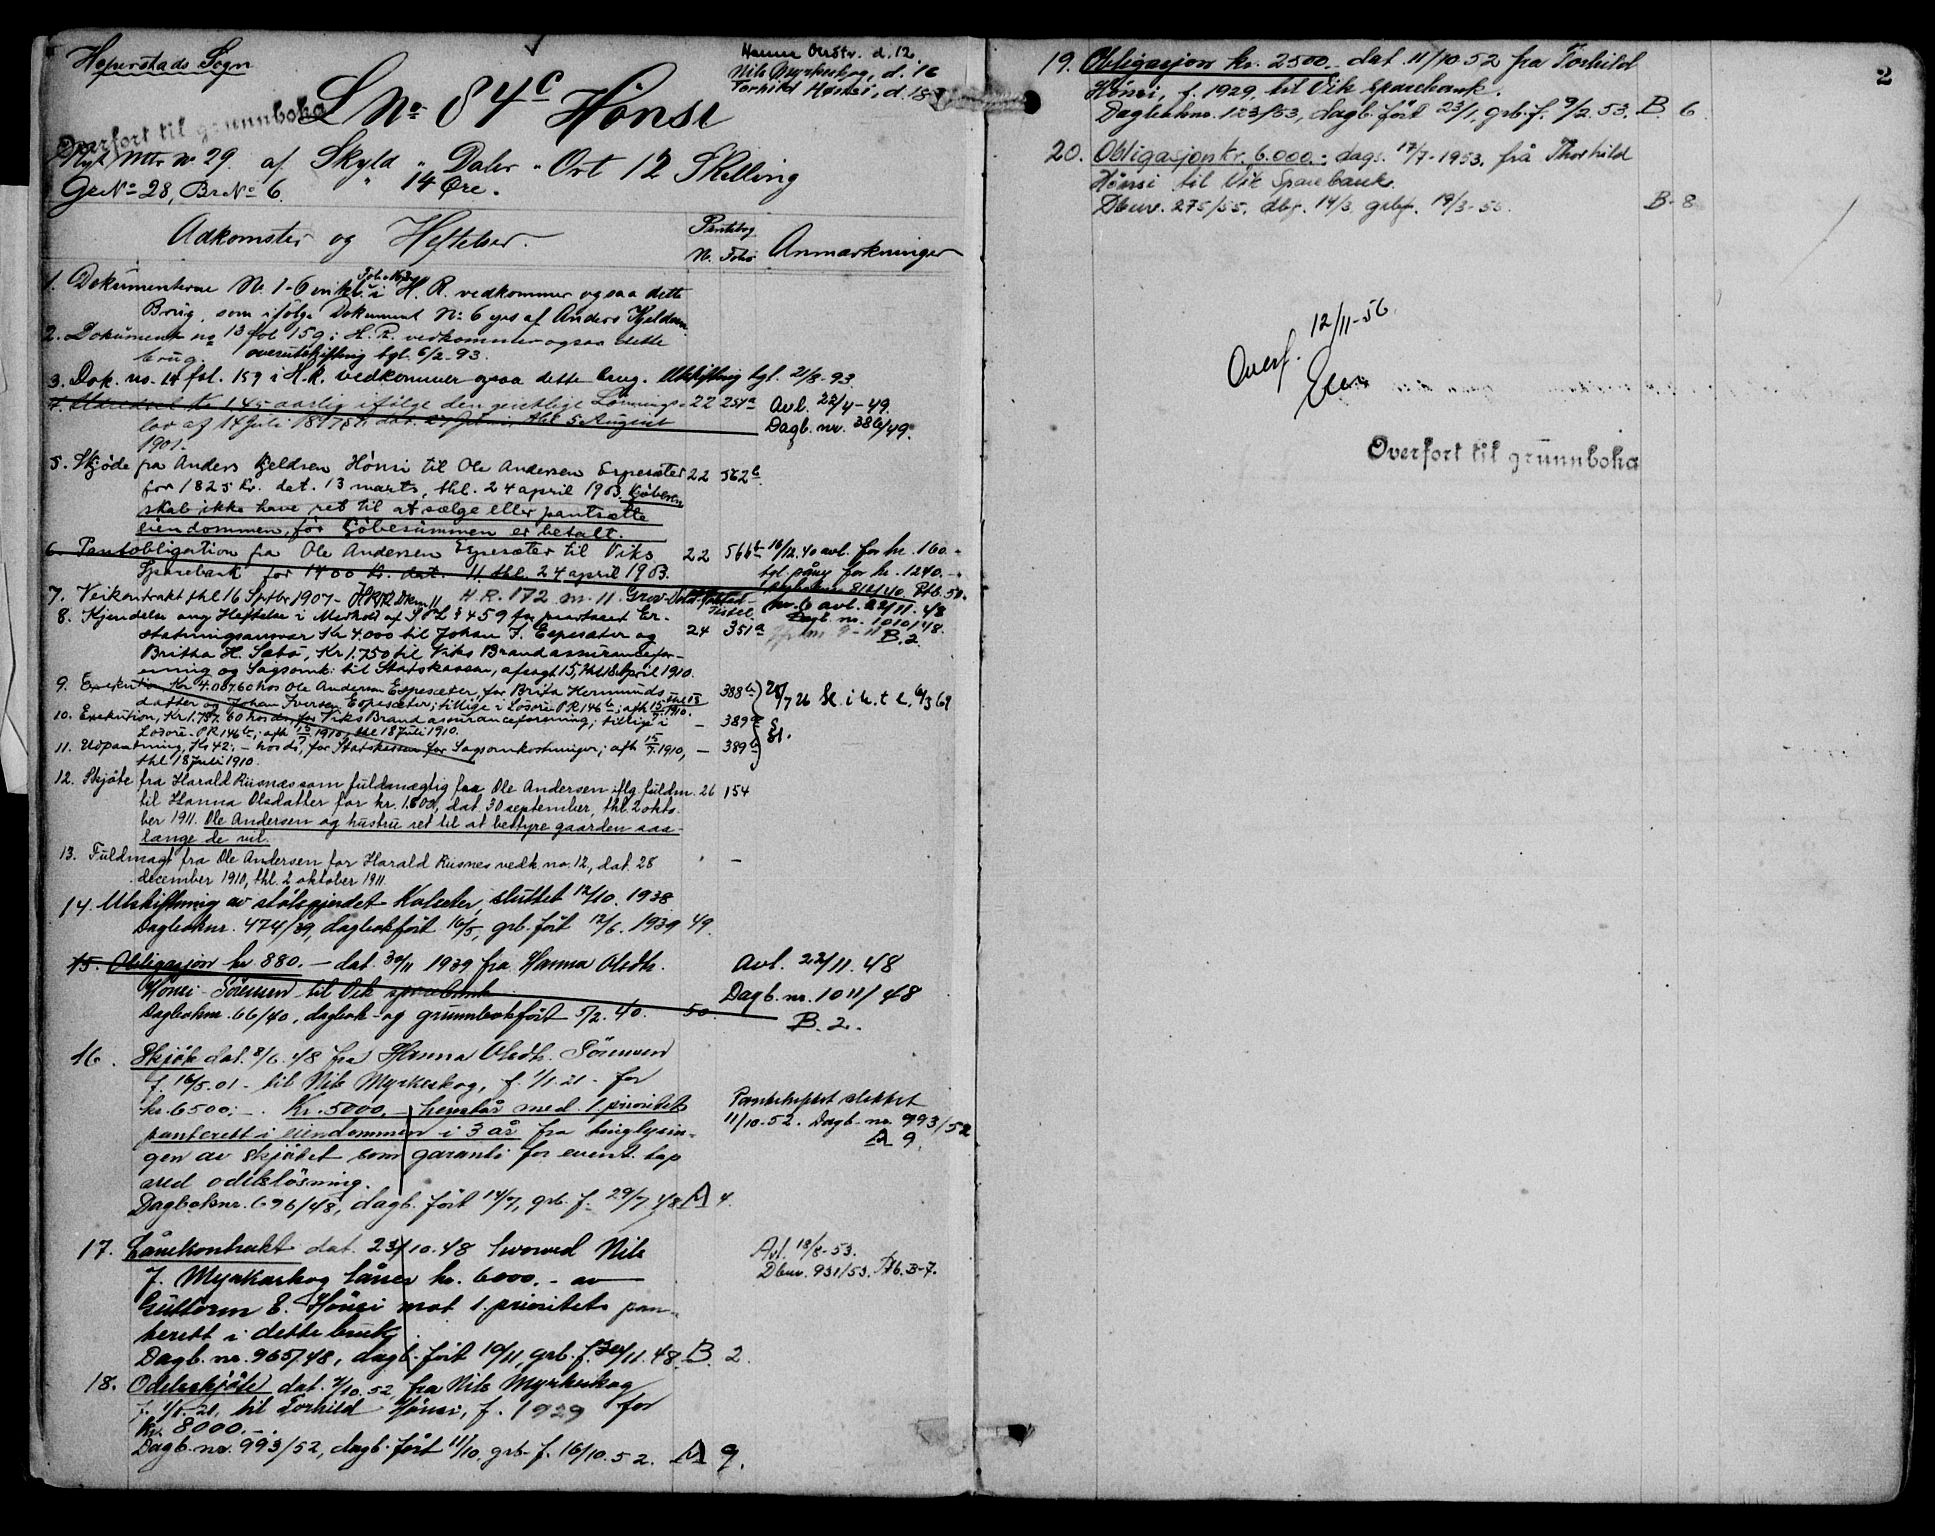 Hoperstads Sogn
Hanna Olsdtr. d. 12.
Nils Myrkeskog, d. 16
Torhild Hønsi, d. 18
L No 84c Hönsi
Overført til grunnboka
Nyt Mtr. No 29. af Skyld " Daler " Ort 12 Skilling
Gr No 28, Br No 6. " 14 Øre.
Adkomster og Heftelser.
Pantebog
N. Folio
Anmærkninger
1. Dokumenterne No. 1-6 inkl. i H. R. vedkommer ogsaa dette
Brug, som ifölge Dokument No 6 eies af Anders Kjeldsen
2. Dokument no 13 fol 159 i H. R. vedkommer ogsaa dette
brug. overutskiftning tgl. 6/2-93.
3. Dok. no. 14 fol. 159 i H. R. vedkommer ogsaa dette brug. Utskiftning tgl. 21/8-93.
4. Kr 145 aarlig ifölge den geistlige Lönnings- 22 254a Avl. 22/4-49.
lov af 14 Juli 1897 dat. thl 5 August
Dagb. nr. 386/49.
1901.
5. Skjöde fra Anders Kjeldsen Hönsi til Ole Andersen Espesæter 22 562b
for 1825 Kr. dat. 13 marts, thl. 24 april 1903. Kjöberen
skal ikke have ret til at sælge eller pantsætte
eiendommen, för Kjöbesummen er betalt.
6. Pantobligation fra Ole Andersen Espesæter til Viks 22 566b 16/12.40 avl. for kr. 160.-
Sparebank for 1400 Kr. dat. 11 thl. 24 april 1903.
tgl. påny for kr. 1240.-
Dagboknr. 812/40. Ptb. 50.
7. Veikontrakt thl 16 Septbr 1907 - H. R. 172 nr. 11.
nr. 6 avl. 22/11.48
Dagb. nr. 1010/48.
B. 2.
8. Kjendelse ang Heftelse i Medhold af S P L § 459 for paastaaet Er-
statningsansvar Kr 4.000 til Johan I. Espesæter og 24 351a
Britha H. Sæbö, Kr. 1.750 til Viks Brandassuranceforening
og Sagsomk. til Statskassen, afsagt 15, thl 18 April 1910.
9. Exekution Kr 4.007.60 hos Ole Andersen Espesæter, for Brita Hermunds- 388b 28/7 26 Sl. i h. t l. 6/3 69
datter og Johan Iversen Espesæter; tillige i Lösöre P R 146b; afh 15 thl 18 1910.
10. Exekution, Kr. 1.757.60 hos ds, for Viks Brandassuranceforening; tillige i - 389a Sl.
Lösöre-P R 146b; afh 15/7 1910, thl 18 Juli 1910.
11. Udpantning, Kr 42,- hos ds, for Statskassen for Sagsomkostninger; afh 15/7 1910, - 389b
thl 18 Juli 1910.
12. Skjöte fra Harald Rusnes som fuldmægtig fra Ole Andersen iflg. fuldm. 26 154
til Hanna Olsdatter for kr. 1.800, dat. 30 september, thl. 2 okto-
ber 1911. Ole Andersen og hustru ret til at bestyre gaarden saa-
længe de vil.
13. Fuldmagt fra Ole Andersen for Harald Rusnes vedk. no. 12, dat. 28 " -
december 1910, thl. 2 oktober 1911.
14. Utskiftning av stölsgjerdet Kalseter, sluttet 12/10. 1938
Dagboknr. 474/39, dagbokfört 16/5, grb. fört 12/6. 1939 49.
15. Obligasjon kr 880.- dat. 30/11 1939 fra Hanna Olsdtr. Avl. 22/11. 48
Hönsi-Sörensen til Vik sparebank
Dagb. nr. 1011/48
Dagboknr. 66/40, dagbok- og grunnbokfört 5/2. 40. 50.
B. 2.
16. Skjöte dat. 8/6. 48 fra Hanna Olsdtr. Sörensen
f. 16/5.01- til Nils Myrkeskog, f. 1/1.21- for
kr. 6500,-. Kr. 5000.- henstår med 1. prioritets
Panteheftet slettet
panterett i eiendommen i 3 år fra tinglysin-
11/10.52. Dagb. nr. 993/52
A 9.
gen av skjötet som garanti for event. tap
ved odelslösning.
Dagboknr. 696/48, dagb. fört 14/7, grb. f. 29/7.48. A 4.
17. Lånekontrakt dat. 23/10.48 hvorved Nils
Avl. 18/8-53.
J. Myrkaskog låner kr. 6000.- av
Dbnr. 931/53. Ptb. B-7.
Guttorm E. Hönsi mot 1. prioritets pan-
terett i dette bruk.
Dagb. nr. 965/48, dagb. fört 10/11, grb. f. 20/11.48. B. 2.
18. Odelsskjöte dat. 7/10.52 fra Nils Myrkeskog
f. 1/1.21, til Torhild Hönsi, f. 1929 for
Kr. 8000.-.
Dagb. nr. 993/52, dagb. fört 11/10, grb. f. 16/10.52. A 9.
2
19. Obligasjon kr. 2500.- dat. 11/10 52 fra Torhild
Hönsi, f. 1929, til Vik sparebank.
Dagboknr. 123/53, dagb. fört 23/1, grb. f. 9/2.53. B. 6.
20. Obligasjon kr. 6.000.- dags. 17/7-1953, frå Thorhild
Hönsi til Vik Sparebank.
Dbnr. 275/55, dbf. 14/3, grbf. 19/3-55. B-8
12/11-56.
Overf.
Overført til grunnboka